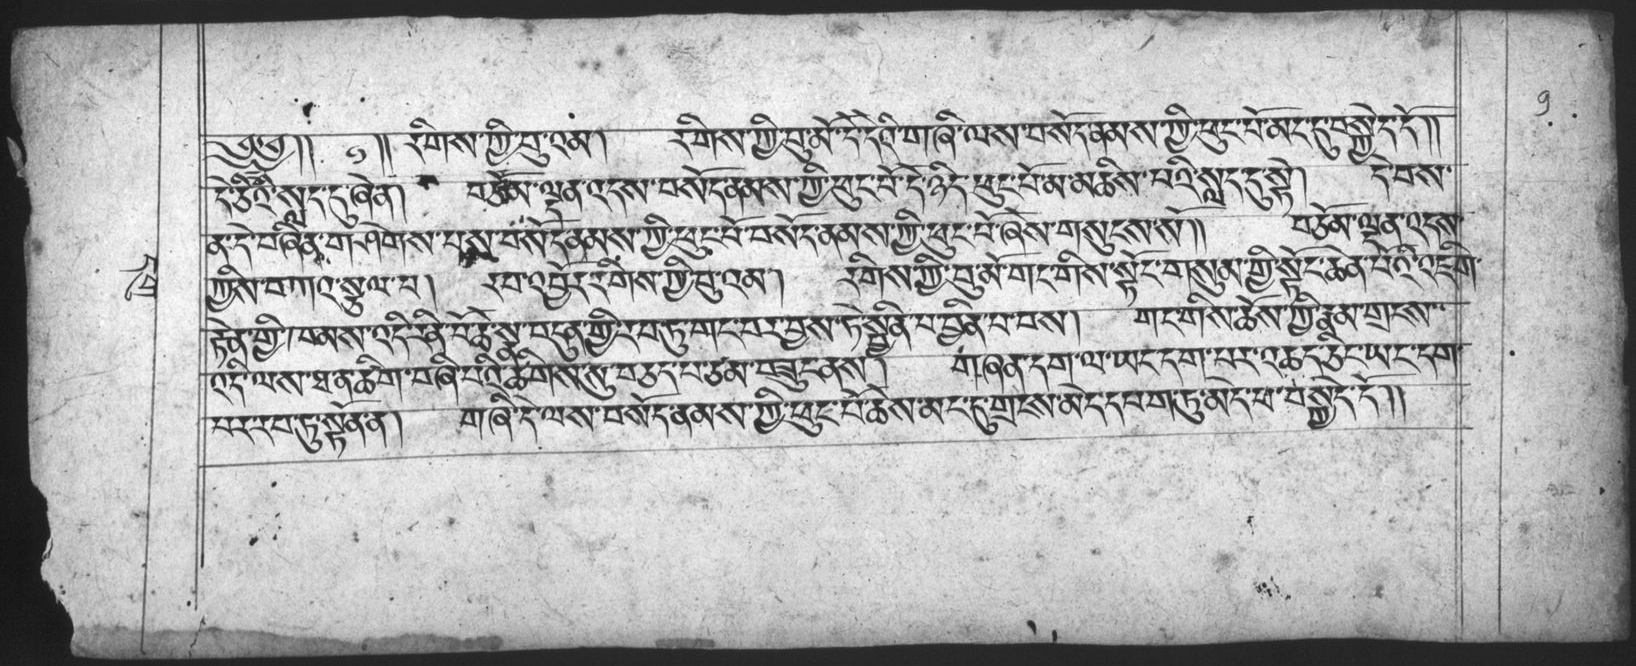 ༄༅།། ༡ །། རིགས་ཀྱི་བུ་འམ། རིགས་ཀྱི་བུ་མོ་དེ་དེའི་གཞི་ལས་བསོད་ནམས་ཀྱི་ཕུང་པོ་མང་དུ་བསྐྱེད་དོ།།
དེ་ཅིའི་སླད་དུ་ཞེ་ན། བཅོམ་ལྡན་འདས་བསོད་ནམས་ཀྱི་ཕུང་པོ་དེ་ཉིད་ཕུང་པོ་མ་མཆིས་པའི་སླད་དུ་སྟེ། དེ་བས་
ན་དེ་བཞིན་གཤེགས་པས་བསོད་ནམས་ཀྱི་ཕུང་པོ་བསོད་ནམས་ཀྱི་ཕུང་པོ་ཞེས་གསུངས་སོ།། བཅོམ་ལྡན་འདས་
ཀྱིས་བཀའ་སྩལ་པ། རབ་འབྱོར་རིགས་ཀྱི་བུ་འམ། རིགས་ཀྱི་བུ་མོ་གང་གིས་སྟོང་གསུམ་གྱི་སྟོང་ཆེན་པོའི་འཇིག་
རྟེན་གྱི་ཁམས་འདི་རིན་པོ་ཆེ་སྣ་བདུན་གྱིས་རབ་ཏུ་གང་བར་བྱས་ཏེ་སྦྱིན་པ་བྱིན་པ་བས། གང་གིས་ཆོས་ཀྱི་རྣམ་གྲངས་
འདི་ལས་ཐ་ན་ཚིག་བཞི་པའི་ཚིགས་སུ་བཅད་པ་ཙམ་བཟུང་ནས། གཞན་དག་ལ་ཡང་དག་པར་འཆད་ཅིང་ཡང་དག་
པར་རབ་ཏུ་སྟོན་ན། གཞི་དེ་ལས་བསོད་ནམས་ཀྱི་ཕུང་པོ་ཆེས་མང་དུ་གྲངས་མེད་དཔག་ཏུ་མེད་པ་བསྐྱེད་དོ།།